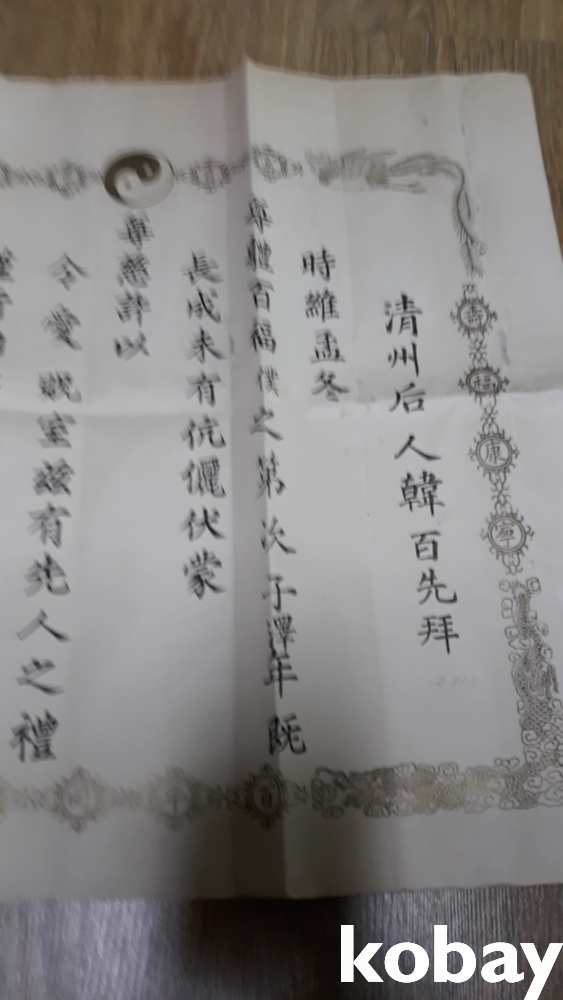 壽福康寧
清州后人韓百先拜
時維孟冬
尊體百福僕之第次子澤年既
長成未有伉儷伏蒙
尊慈許以
令愛貺室玆有先人之禮
kobay